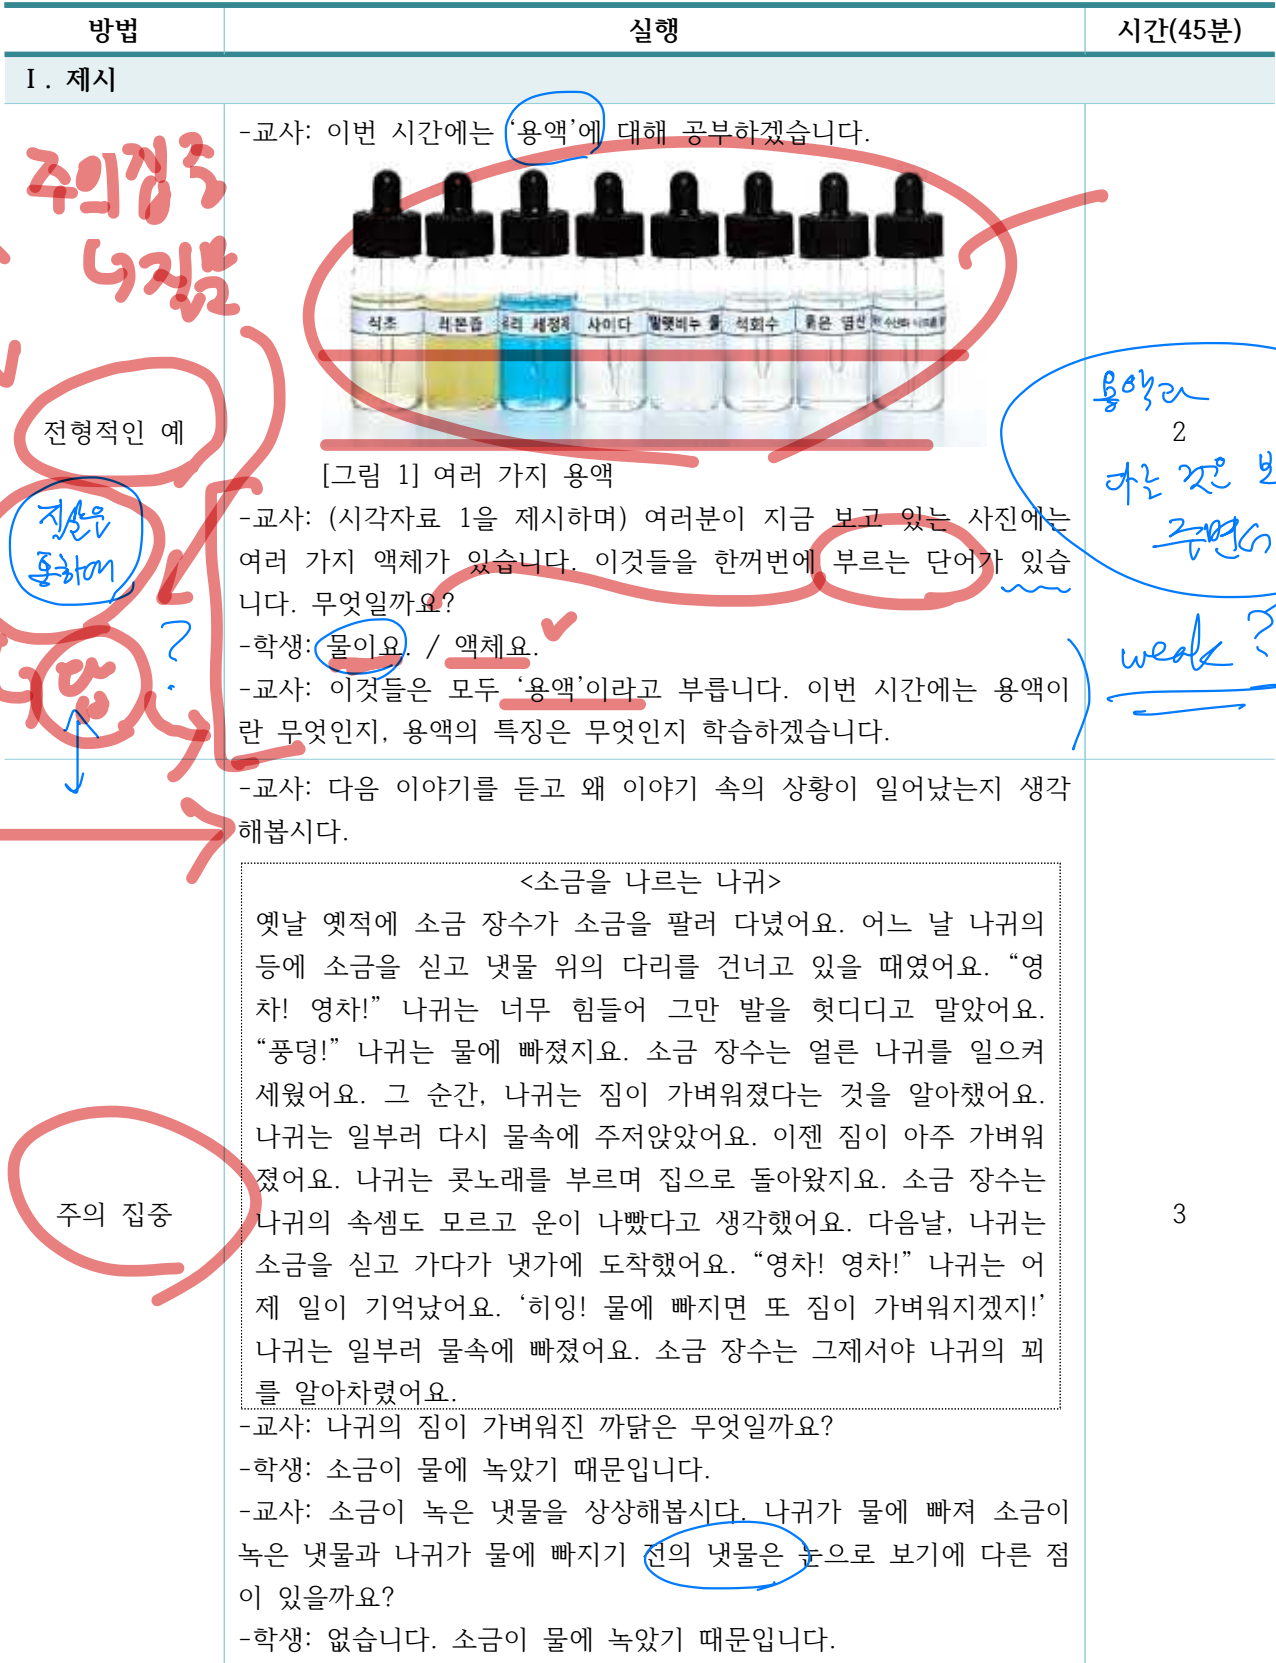 방법 실행 시간(45분)
Ⅰ. 제시
-교사: 이번 시간에는 ‘용액’에 대해 공부하겠습니다.
주의집중
질문
식초 레몬즙 유리 세정제 사이다 빨랫비누 물 석회수 묽은 염산
[그림 1] 여러 가지 용액
전형적인 예
2
용액
질문을
통하여
-교사: (시각자료 1을 제시하며) 여러분이 지금 보고 있는 사진에는
여러 가지 액체가 있습니다. 이것들을 한꺼번에 부르는 단어가 있습
니다. 무엇일까요?
-학생: 물이요. / 액체요.
?
답
weak ?
-교사: 이것들은 모두 ‘용액’이라고 부릅니다. 이번 시간에는 용액이
란 무엇인지, 용액의 특징은 무엇인지 학습하겠습니다.
-교사: 다음 이야기를 듣고 왜 이야기 속의 상황이 일어났는지 생각
해봅시다.
<소금을 나르는 나귀>
옛날 옛적에 소금 장수가 소금을 팔러 다녔어요. 어느 날 나귀의
등에 소금을 싣고 냇물 위의 다리를 건너고 있을 때였어요. “영
차! 영차!” 나귀는 너무 힘들어 그만 발을 헛디디고 말았어요.
“풍덩!” 나귀는 물에 빠졌지요. 소금 장수는 얼른 나귀를 일으켜
세웠어요. 그 순간, 나귀는 짐이 가벼워졌다는 것을 알아챘어요.
나귀는 일부러 다시 물속에 주저앉았어요. 이젠 짐이 아주 가벼워
졌어요. 나귀는 콧노래를 부르며 집으로 돌아왔지요. 소금 장수는
나귀의 속셈도 모르고 운이 나빴다고 생각했어요. 다음날, 나귀는
소금을 싣고 가다가 냇가에 도착했어요. “영차! 영차!” 나귀는 어
제 일이 기억났어요. ‘히잉! 물에 빠지면 또 짐이 가벼워지겠지!’
나귀는 일부러 물속에 빠졌어요. 소금 장수는 그제서야 나귀의 꾀
를 알아차렸어요.
주의 집중
3
-교사: 나귀의 짐이 가벼워진 까닭은 무엇일까요?
-학생: 소금이 물에 녹았기 때문입니다.
-교사: 소금이 녹은 냇물을 상상해봅시다. 나귀가 물에 빠져 소금이
녹은 냇물과 나귀가 물에 빠지기 전의 냇물은 눈으로 보기에 다른 점
이 있을까요?
-학생: 없습니다. 소금이 물에 녹았기 때문입니다.